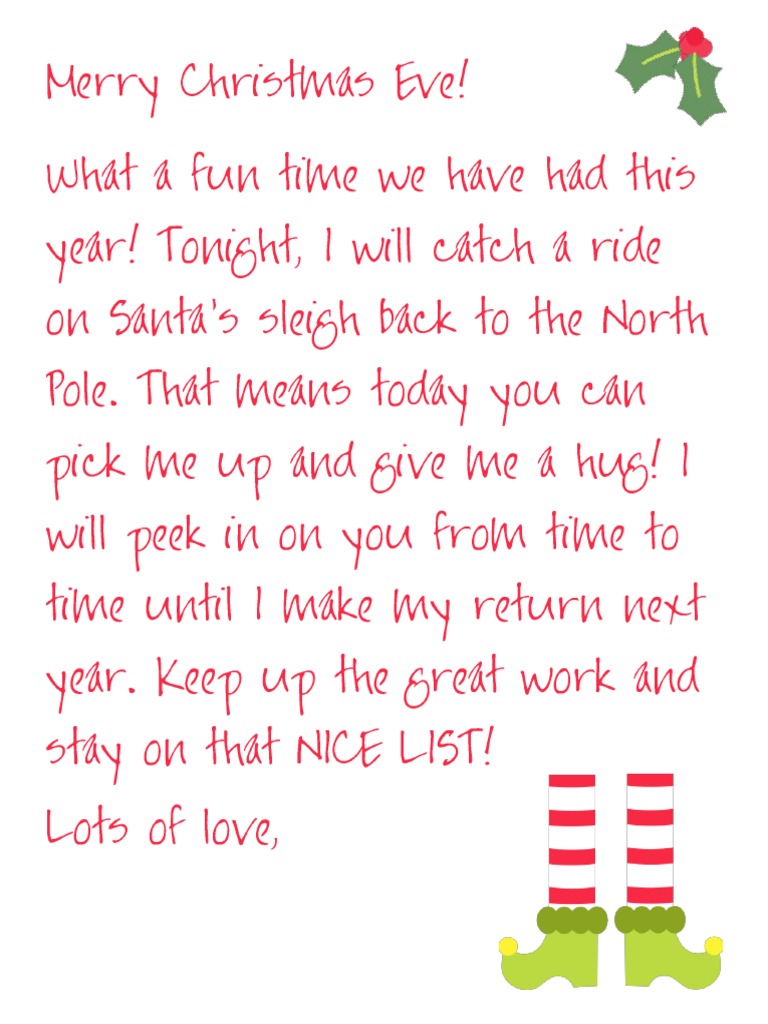 Merry Christmas Eve!
What a fun time we have had this
year! Tonight, I will catch a ride
on Santa's sleigh back to the North
Pole. That means today you can
pick me up and give me a hug! I
will peek in on you from time to
time until I make my return next
year. Keep up the great work and
stay on that NICE LIST!
Lots of love,